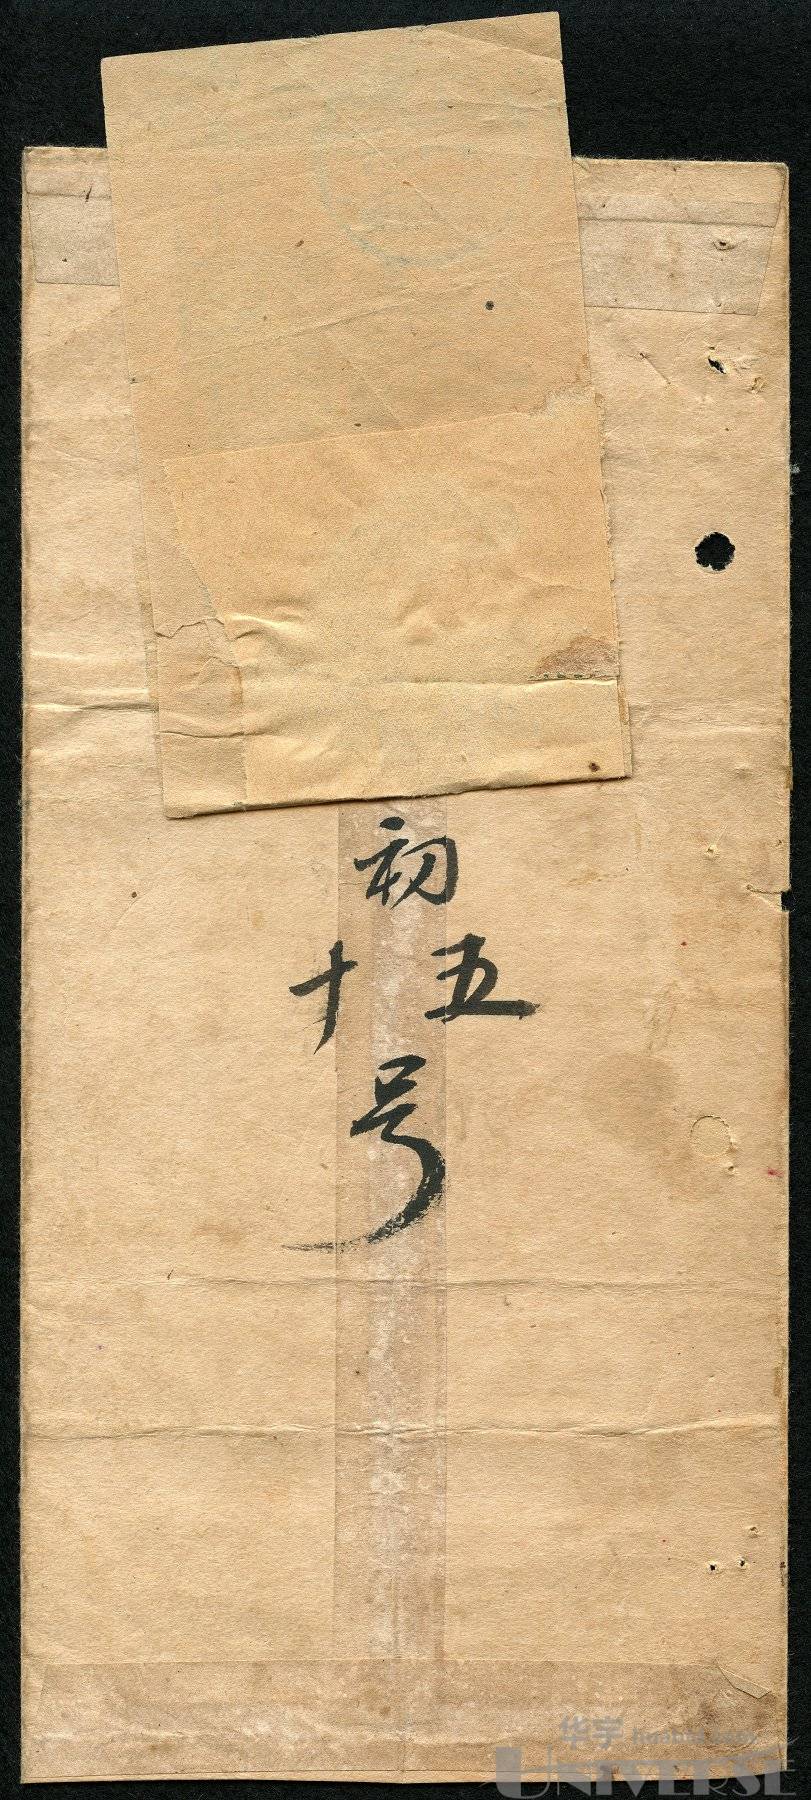 初
五十
号
华宇
huabid.com
UNIVERSE